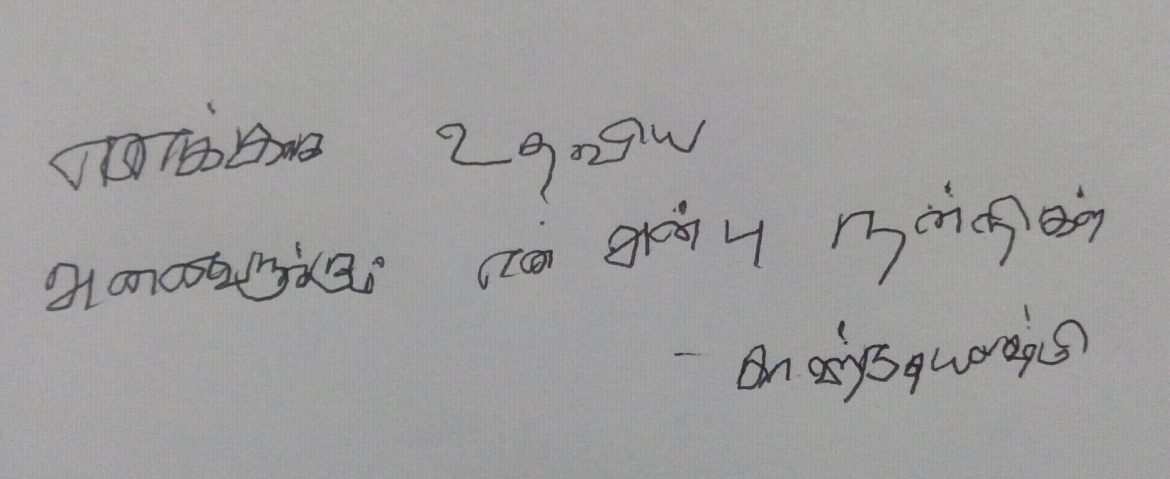 எனக்காக உதவிய
அனைவருக்கும் என் அன்பு நன்றிகள்
-